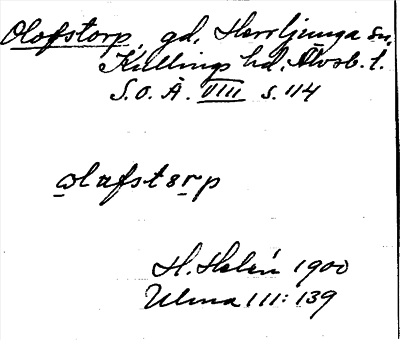 Olofstorp, gd, Herrljunga sn,
Kullings hd. Älvsb. l.
S. O. Ä. VIII s. 114
olafstorp
H. Helén 1900
Ulma 111: 139